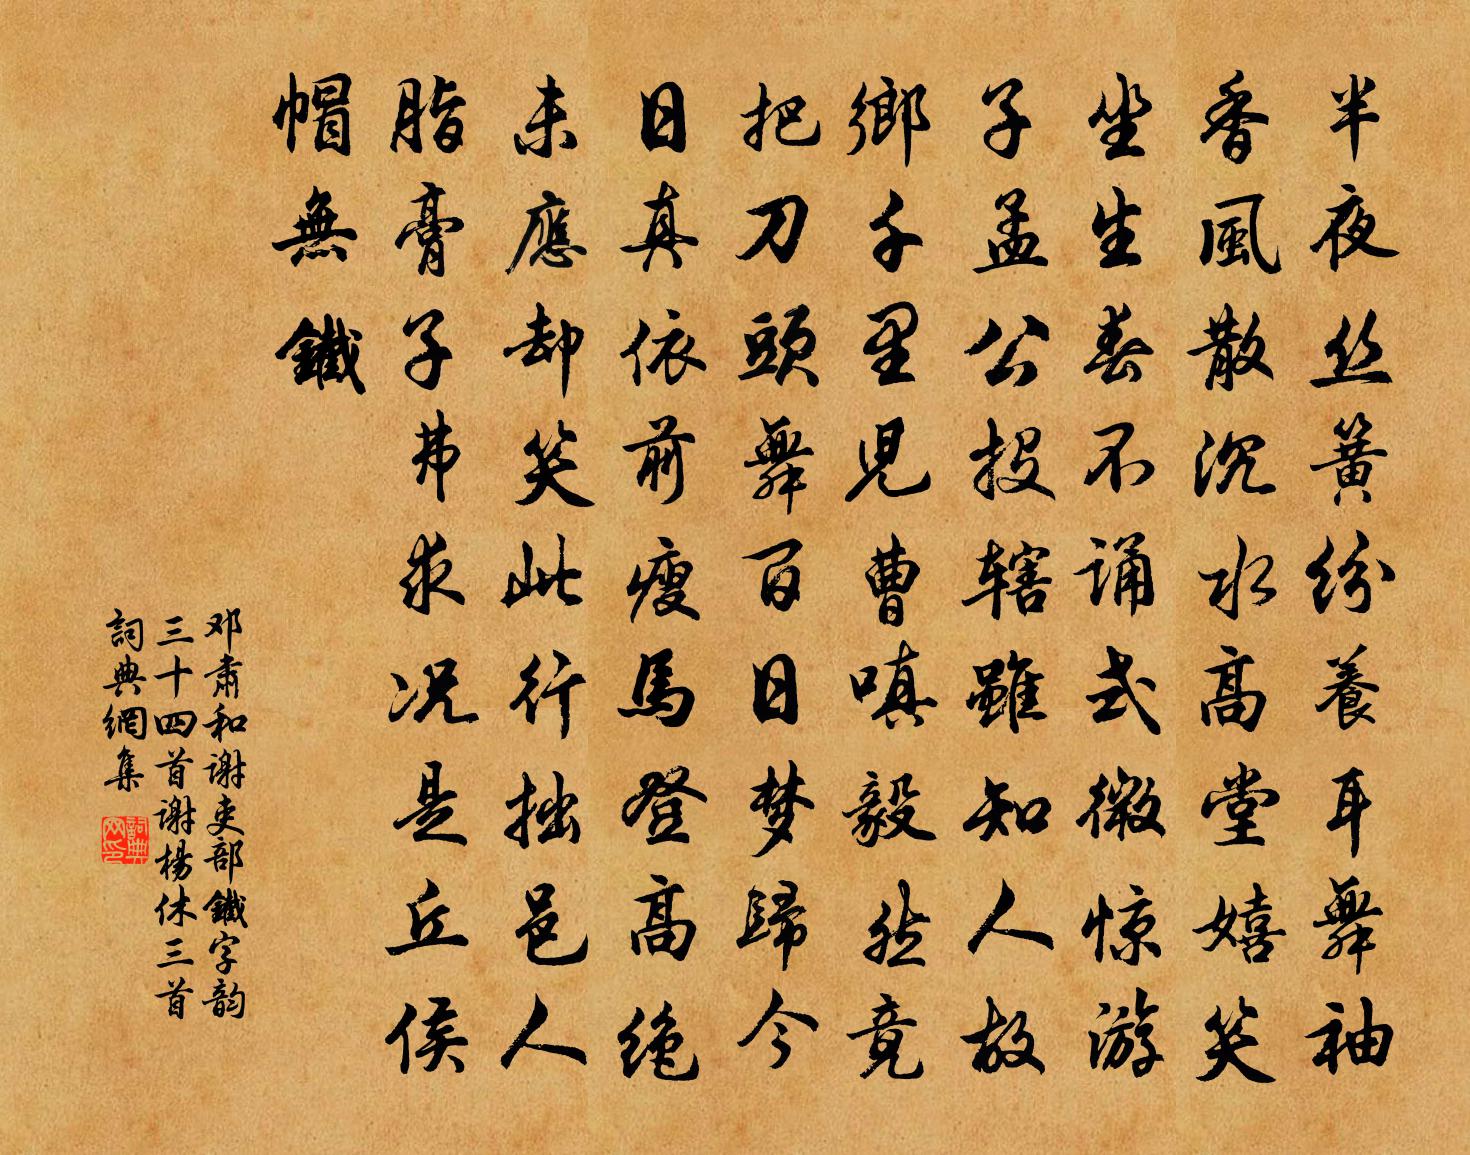 半夜丝簧纷養耳舞袖
香風散沉水高堂嬉笑
坐生春不诵式微惊游
子孟公投辖雖知人故
鄉千里児曹嗔毅然竟
把刀頭舞百日梦歸今
日真依前瘦馬登高绝
未應却笑此行拙邑人
脂膏子弗求况是丘侯
帽無鐵
邓肃和谢吏部鐵字韵
三十四首谢楊休三首
詞典網集
詞典
网印